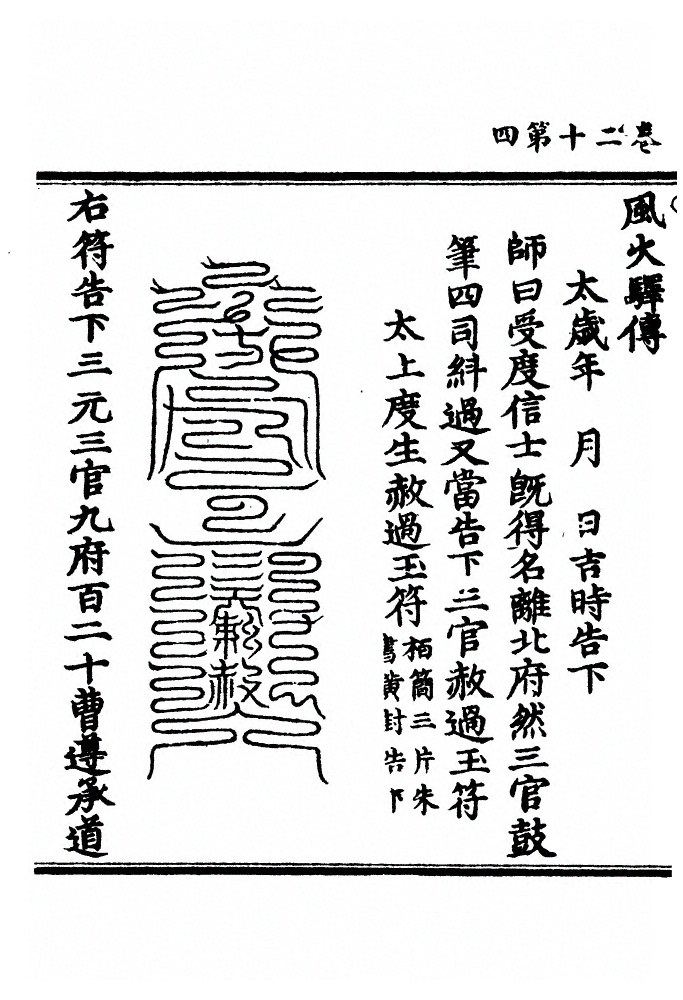 四第十二卷
風火驛傳
太歲年　月　日吉時告下
師曰受度信士既得名離北府然三官鼓
筆四司紏過又當告下三官赦過玉符
太上度生赦過玉符 栢簡三片朱
書黃封告下
敕赦
右符告下三元三官九府百二十曹遵承道